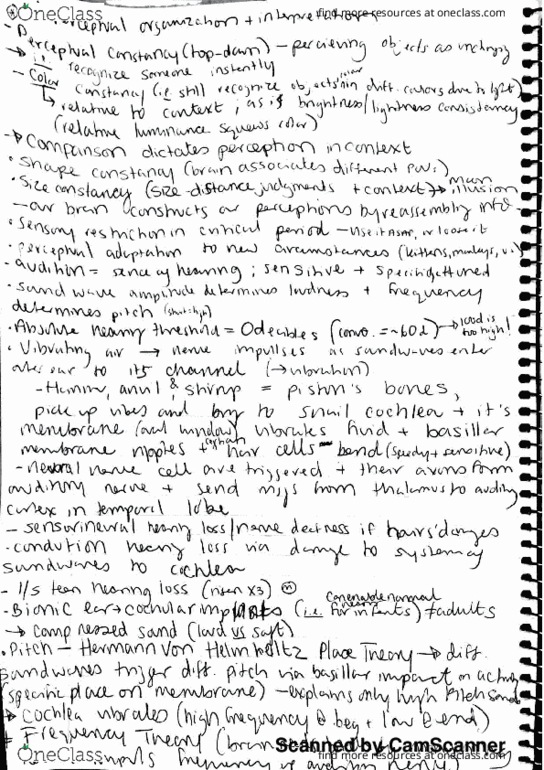 perceptual organization + interpretation
find more resources at oneclass.com
OneClass
- Perceptual constancy (top-down) - percieving objects as unchanging
recognize someone instantly
- Color constancy (i.e. still recognize objects' color in diff. colors due to light)
relative to context; as is brightness/lightness consistancy
(relative luminance squews color)
→ Comparison dictates perception in context
• Shape constancy (brain associates different P.O.V.)
• Size constancy (size-distance judgments + context) → moon illusion
- our brain constructs our perceptions by reassembly info
• Sensory restriction in critical period - use it or lose it
• perceptual adaptation to new circumstances (kittens, monkeys,
- audition = sense of hearing; sensitive + specific tuned
• sound wave amplitude determines loudness + frequency
determines pitch (short=high)
• Absolute hearing threshold = 0 decibles (convo. = ~60d) → loud is too high!
• Vibrating air → nerve impulses as soundwaves enter
outer ear to its channel (→ vibration)
- Hammer, anvil & stirrup = piston's bones,
pick up vibes and bring to snail cochlea + it's
membrane (oval window) vibrates fluid + basillar
membrane ripples + hair cells - bend (speedy + sensitive)
- neural nerve cell are triggered + their axons form
auditory nerve + send msgs from thalamus to auditory
cortex in temporal lobe
- sensorineural hearing loss/nerve deafness if hairs damages
- condution hearing loss via damage to system of
soundwaves to cochlea
- 1/5 teen hearing loss (risen x3)
- Bionic ear → cochlear implants (i.e. for infants) + adults
can enable normal
→ compressed sound (loud vs soft)
• Pitch - Hermann von Helmholtz Place Theory → diff.
soundwaves trigger diff. pitch via basillar impact or activity
(specific place on membrane) - explains only high pitch sounds
→ Cochlea vibrates (high frequency @ beg + low @ end)
+ Frequency Theory (brain
OneClass
Scanned by CamScanner
find more resources at oneclass.com
frequency